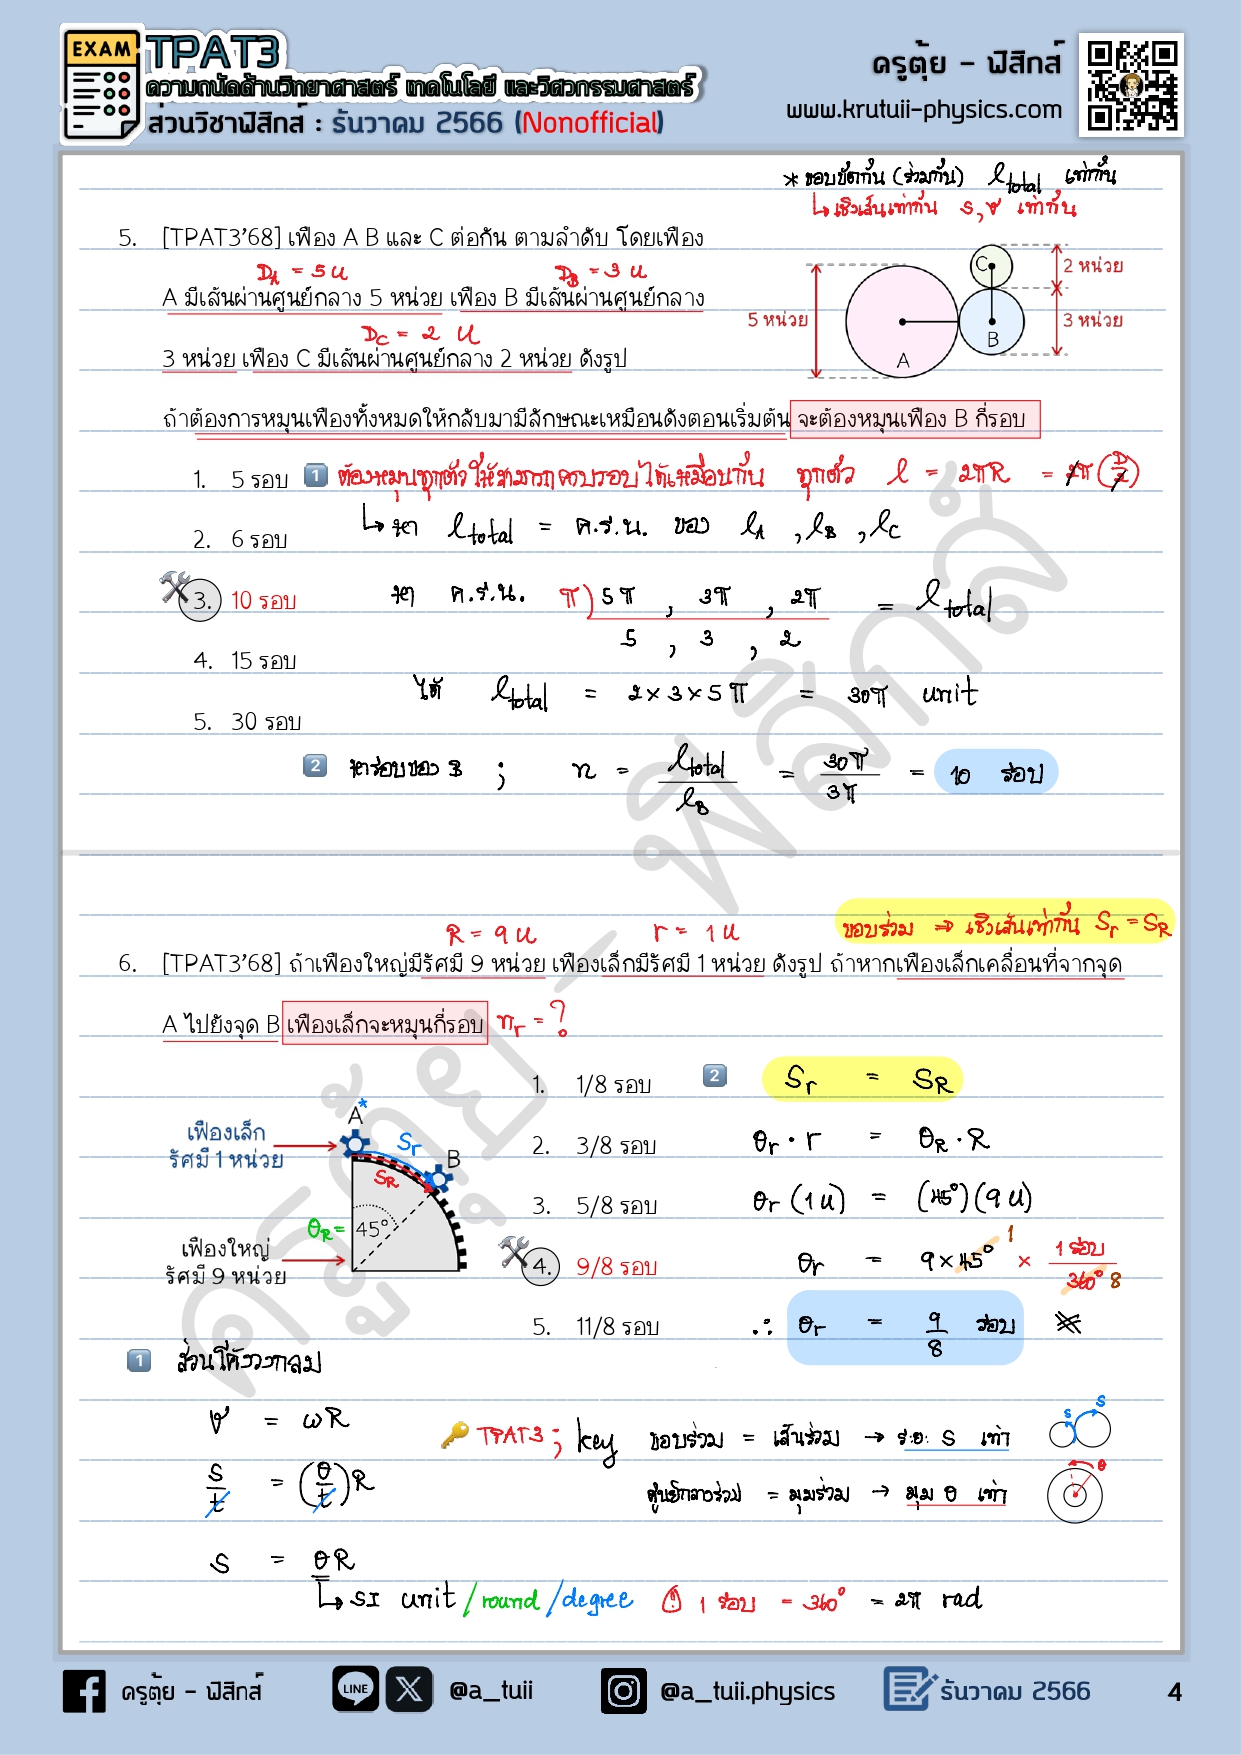 EXAM
TPAT3
ความถนัดด้านวิทยาศาสตร์ เทคโนโลยี และวิศวกรรมศาสตร์
ส่วนวิชาฟิสิกส์ : ธันวาคม 2566 (Nonofficial)
ครูตุ้ย - ฟิสิกส์
www.krutuii-physics.com
* ขอบขัดกัน (ร่วมกัน) ℓtotal เท่ากัน
↳ เชิงเส้นเท่ากัน s, v เท่ากัน
5. [TPAT3'68] เฟือง A B และ C ต่อกัน ตามลำดับ โดยเฟือง
D_A = 5 u D_B = 3 u
A มีเส้นผ่านศูนย์กลาง 5 หน่วย เฟือง B มีเส้นผ่านศูนย์กลาง
D_C = 2 u
3 หน่วย เฟือง C มีเส้นผ่านศูนย์กลาง 2 หน่วย ดังรูป
5 หน่วย A B C 2 หน่วย 3 หน่วย
ถ้าต้องการหมุนเฟืองทั้งหมดให้กลับมามีลักษณะเหมือนดังตอนเริ่มต้น จะต้องหมุนเฟือง B กี่รอบ
1. 5 รอบ
1 ต้องหมุนทุกตัวให้สามารถครบรอบได้เหมือนกัน ทุกตัว ℓ = 2πR = 2π(D/2)
2. 6 รอบ
↳ หา ℓtotal = ค.ร.น. ของ ℓA , ℓB , ℓC
3. 10 รอบ
หา ค.ร.น. π) 5π , 3π , 2π = ℓtotal
5 , 3 , 2
4. 15 รอบ
ได้ ℓtotal = 2 × 3 × 5 π = 30π unit
5. 30 รอบ
2 หารอบของ B ; n = ℓtotal/ℓB = 30π/3π = 10 รอบ
ขอบร่วม ⇒ เชิงเส้นเท่ากัน Sr = SR
R = 9 u r = 1 u
6. [TPAT3'68] ถ้าเฟืองใหญ่มีรัศมี 9 หน่วย เฟืองเล็กมีรัศมี 1 หน่วย ดังรูป ถ้าหากเฟืองเล็กเคลื่อนที่จากจุด
A ไปยังจุด B เฟืองเล็กจะหมุนกี่รอบ nr = ?
1. 1/8 รอบ
2. 3/8 รอบ
3. 5/8 รอบ
4. 9/8 รอบ
5. 11/8 รอบ
2 Sr = SR
θr · r = θR · R
θr (1 u) = (45°)(9 u)
θr = 9 × 45° 1 × 1 รอบ/360° 8
∴ θr = 9/8 รอบ
A*
B
Sr
SR
θR = 45°
เฟืองเล็ก
รัศมี 1 หน่วย
เฟืองใหญ่
รัศมี 9 หน่วย
1 ส่วนโค้งวงกลม
v = ωR
s/t = (θ/t)R
s = θR
↳ SI unit / round / degree 1 รอบ = 360° = 2π rad
TPAT3 ; key ขอบร่วม = เส้นร่วม → ระยะ s เท่า
s s
ศูนย์กลางร่วม = มุมร่วม → มุม θ เท่า
θ
ครูตุ้ย - ฟิสิกส์
ครูตุ้ย - ฟิสิกส์
LINE
@a_tuii
@a_tuii.physics
ธันวาคม 2566
4